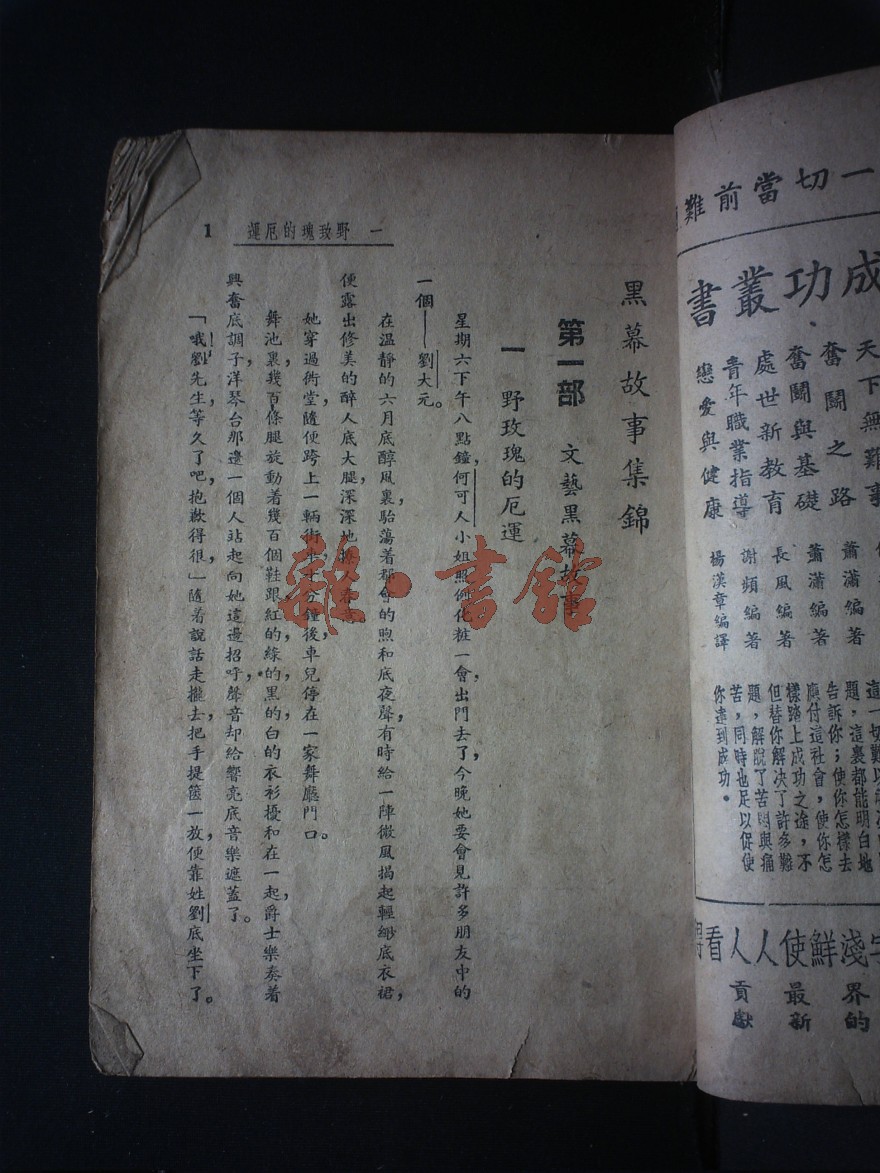 黑幕故事集錦
第一部 文藝黑幕故事
一 野玫瑰的厄運
星期六下午八點鐘,何可人小姐照例化粧一會出門去了,今晚她要會見許多朋友中的
一個——劉大元。
在溫靜的六月底醇風裏,駘蕩着都會的煦和底夜聲,有時給一陣微風揭起輕綢底衣裙,
便露出修美的醉人底大腿,深深地
她穿過衖堂,隨便跨上一輛街車,十分鐘後,車兒停在一家舞廳門口。
舞池裏,幾百條腿旋動着幾百個鞋跟,紅的,綠的,黑的,白的衣衫擾和在一起,爵士樂奏着
興奮底調子,洋琴台那邊一個人站起向她這邊招呼,聲音却給響亮底音樂遮蓋了。
「哦,劉先生,等久了吧,抱歉得很,」隨着說話走攏去,把手提篋一放,便靠姓劉底坐下了。
一 野玫瑰的厄運
1
雜·書館
一切當前難
成功叢書
天下無難事
奮鬭之路
蕭瀟編著
奮鬭與基礎
蕭瀟編著
處世新教育
長風編著
青年職業指導
謝頻編著
戀愛與健康
楊漢章編譯
題,這裏都能明白地
告訴你;使你怎樣去
應付這社會,使你怎
樣踏上成功之途,不
但替你解決了許多難
題,解脫了苦悶與痛
苦,同時也足以促使
你達到成功。
淺鮮使人人看
界的
最新
貢獻